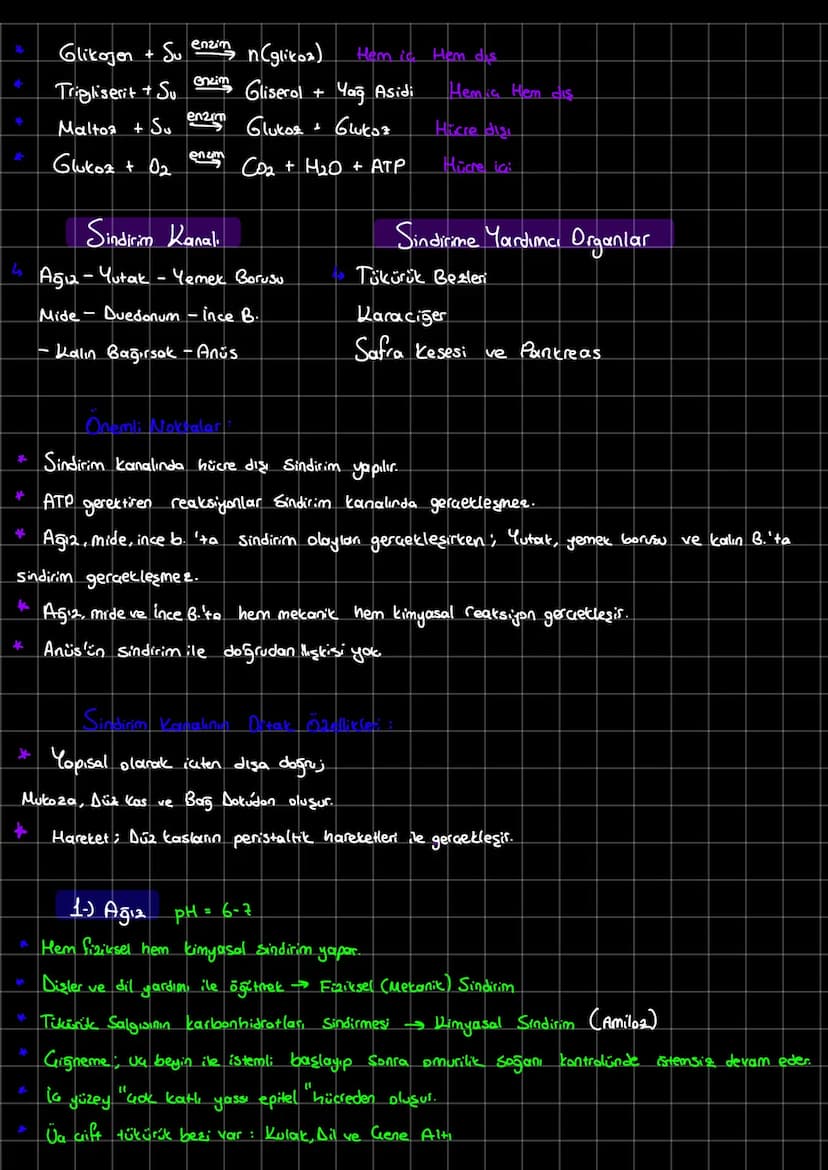 * Glikojen + Su enzim→ n(glikoz) Hem iç Hem dış
* Trigliserit + Su enzim→ Gliserol + Yağ Asidi Hem iç Hem dış
* Maltoz + Su enzim→ Glukoz + Glukoz Hücre dışı
* Glukoz + O2 enzim→ CO2 + H2O + ATP Hücre içi
Sindirim Kanalı Sindirime Yardımcı Organlar
↳ Ağız - Yutak - Yemek Borusu ↳ Tükürük Bezleri
Mide - Duedonum - İnce B. Karaciğer
- Kalın Bağırsak - Anüs Safra Kesesi ve Pankreas
Önemli Noktalar :
* Sindirim kanalında hücre dışı sindirim yapılır.
* ATP gerektiren reaksiyonlar Sindirim kanalında gerçekleşmez.
* Ağız, mide, ince b. 'ta sindirim olayları gerçekleşirken ; Yutak, yemek borusu ve kalın B.'ta
sindirim gerçekleşmez.
* Ağız, mide ve İnce B.'ta hem mekanik hem kimyasal reaksiyon gerçekleşir.
* Anüs'ün sindirim ile doğrudan ilişkisi yok
Sindirim Kanalının Ortak Özellikleri :
* Yapısal olarak içten dışa doğru;
Mukoza, Düz Kas ve Bağ Dokudan oluşur.
* Hareket ; Düz kasların peristaltik hareketleri ile gerçekleşir.
1-) Ağız pH = 6-7
* Hem fiziksel hem kimyasal sindirim yapar.
* Dişler ve dil yardımı ile öğütmek → Fiziksel (Mekanik) Sindirim
* Tükürük Salgısının karbonhidratları sindirmesi → Kimyasal Sindirim (Amiloz)
* Çiğneme ; uç beyin ile istemli başlayıp sonra omurilik soğanı kontrolünde istemsiz devam eder.
* İç yüzey "çok katlı yassı epitel" hücreden oluşur.
* Üç çift tükürük bezi var : Kulak, Dil ve Çene Altı